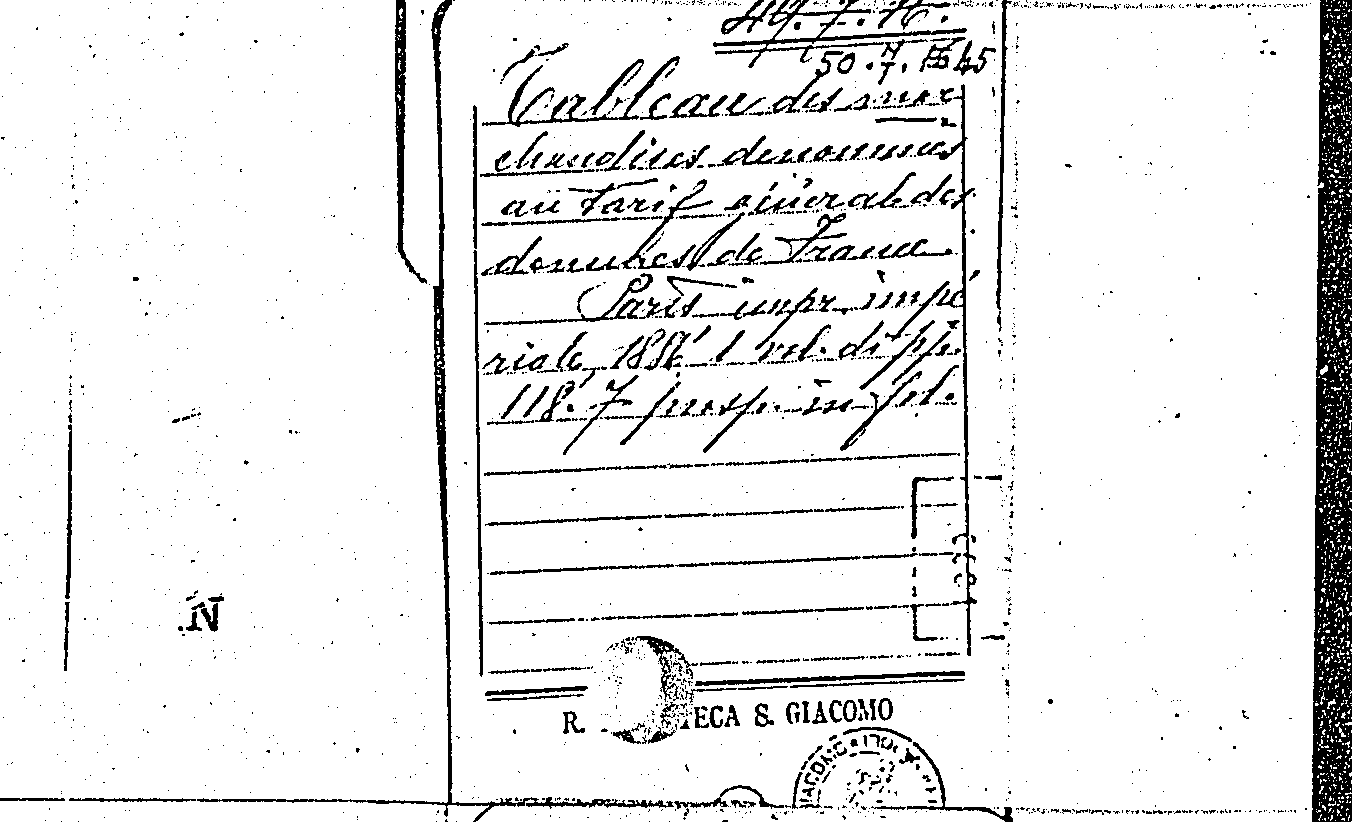 49.7.16.
50.7.45
Tableau des mar
chandises denommés
au Tarif général des
douanes de France.
Paris impr. impé
riale, 1 vol. di pp.
118. 7 prosp. in fol.
R. TECA S. GIACOMO
IACOMO
N